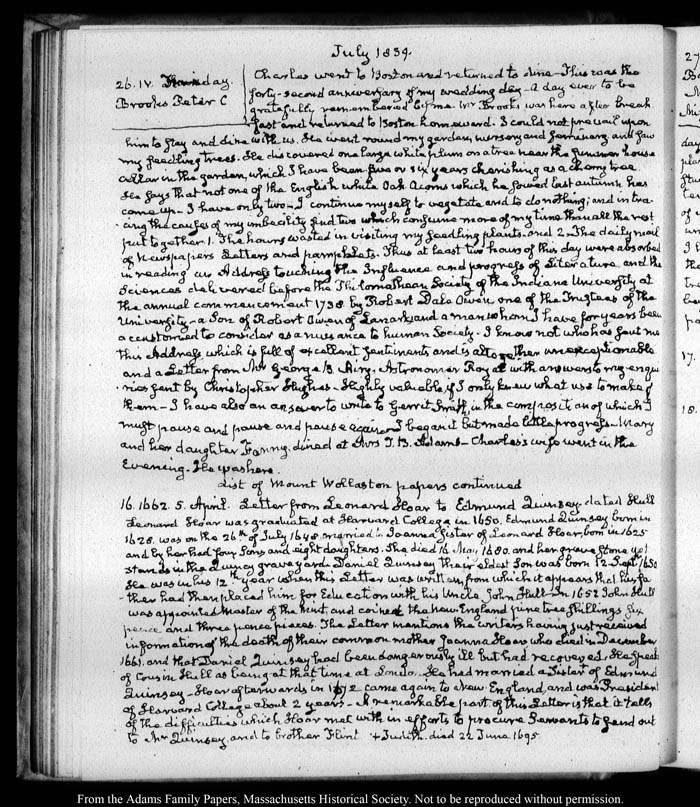 July 1839.
26. IV. Thursday.
Brooks Peter C
Charles went to Boston and returned to dine – This was the
forty-second anniversary of my wedding day – a day ever to be
gratefully remembered by me. Mr Brooks was here after break-
fast and returned to Boston homeward. I could not prevail upon
him to stay and dine with us. He went round my garden, nursery and seminary and saw
my seedling trees. He discovered one large white plum on a tree near the summer house
cellar in the garden, which I have been five or six years cherishing as a cherry tree
He says that not one of the English white Oak Acorns which he sowed last autumn has
come up – I have only two – I continue myself to vegetate and to do nothing; and in tra-
cing the causes of my imbecility find two which consume more of my time than all the rest
put together 1. The hours wasted in visiting my seedling plants – and 2. The daily mail
of Newspapers Letters and pamphlets. Thus at least two hours of this day were absorbed
in reading an Address touching the Influence and progress of Literature and the
Sciences delivered before the Philomathean Society of the Indiana University at
the annual commencement 1738 by Robert Dale Owen, one of the Trustees of the
University – a Son of Robert Owen of Lanark, and a man whom I have for years been
accustomed to consider as a nuisance to human Society – I know not who has sent me
this Address, which is full of excellent sentiments and is altogether unexceptionable
and a Letter from Mr George B. Airy, Astronomer Royal with answers to my enqui-
ries sent by Christopher Hughes – Highly valuable, if I only knew what use to make of
them – I have also an answer to write to Gerrit Smith, in the composition of which I
must pause and pause and pause again – I began it but made little progress – Mary
and her daughter Fanny dined at Mrs T. B. Adams – Charles's wife went in the
Evening. He was here.
List of Mount Wollaston papers continued
16. 1662. 5. April. Letter from Leonard Hoar to Edmund Quinsey. dated Hull
Leonard Hoar was graduated at Harvard College in 1650. Edmund Quinsey born in
1628 was on the 26th of July 1648 married to Joanna Sister of Leonard Hoar born in 1625
and by her had four Sons and eight daughters. She died 16 May 1680. and her grave stone yet
stands in the Quincy graveyard. Daniel Quinsey their eldest Son was born 12 Septr 1650
He was in his 12th year when this Letter was written, from which it appears that his fa-
ther had then placed him for Education with his Uncle John Hull – In 1652 John Hull
was appointed Master of the Mint, and coined the new England pine tree shillings six
pence and three pence pieces. The Letter mentions the writers having just received
information of the death of their common mother Joanna Hoar who died in December
1661. and that Daniel Quinsey had been dangerously ill but had recovered. He speaks
of Cousin Hull as being at that time at London. He had married a Sister of Edmund
Quinsey – Hoar afterwards in 1672 came again to New England, and was President
of Harvard College about 2 years – A remarkable part of this Letter is that it tells
of the difficulties which Hoar met with in efforts to procure Servants to send out
to Mr Quinsey, and to brother Flint + Judith. died 22 June 1695.
17.
18.
From the Adams Family Papers, Massachusetts Historical Society. Not to be reproduced without permission.